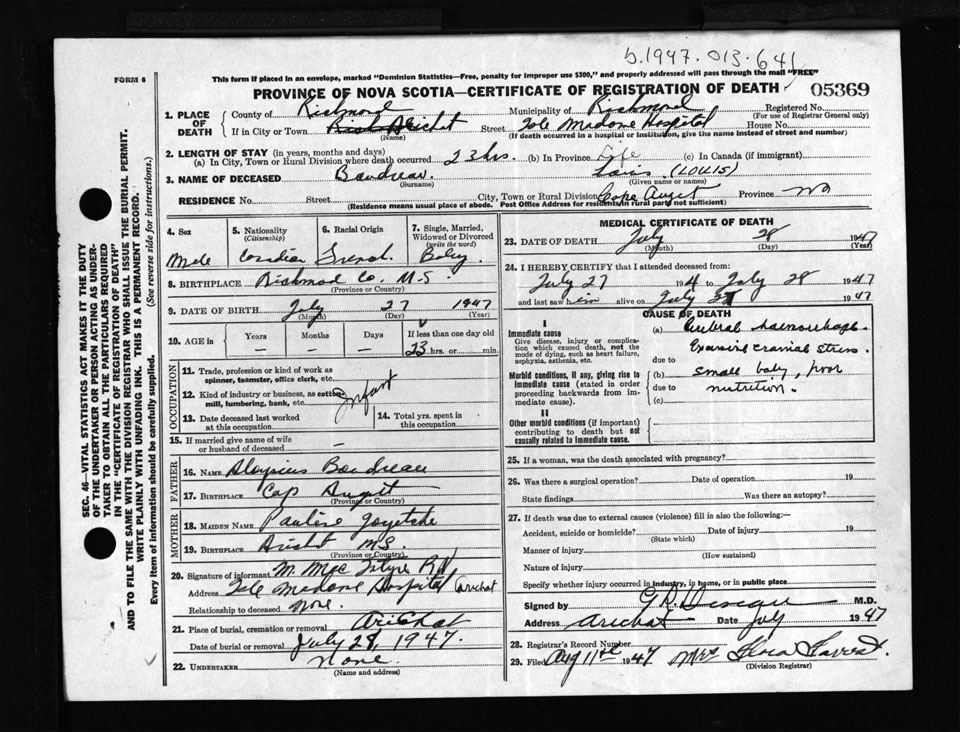 b.1947.013-641
FORM 6
This form if placed in an envelope, marked "Dominion Statistics—Free, penalty for improper use $300," and properly addressed will pass through the mail "FREE"
PROVINCE OF NOVA SCOTIA—CERTIFICATE OF REGISTRATION OF DEATH 05369
1. PLACE OF DEATH
County of Richmond Municipality of Richmond Registered No.
(For use of Registrar General only)
If in City or Town Arichat Street Hospital House No.
(Name) (If death occurred in a hospital or institution, give the name instead of street and number)
2. LENGTH OF STAY (in years, months and days)
(a) In City, Town or Rural Division where death occurred 23 hrs. (b) In Province Life (c) In Canada (if immigrant)
3. NAME OF DECEASED Boudreau Louis (LOUIS)
(Surname) (Given name or names)
RESIDENCE No. Street City, Town or Rural Division Cape Auget Province NS
(Residence means usual place of abode. Post Office Address for residents in rural parts not sufficient)
4. Sex Male
5. Nationality (Citizenship) Canadian
6. Racial Origin French
7. Single, Married, Widowed or Divorced (write the word) Baby
8. BIRTHPLACE Richmond Co. N-S.
(Province or Country)
9. DATE OF BIRTH July 27 1947
(Month) (Day) (Year)
10. AGE in Years Months Days If less than one day old
— — 23 hrs. or min.
OCCUPATION
11. Trade, profession or kind of work as spinner, teamster, office clerk, etc.
12. Kind of industry or business, as cotton mill, lumbering, bank, etc. Infant
13. Date deceased last worked at this occupation
14. Total yrs. spent in this occupation
15. If married give name of wife or husband of deceased —
FATHER
16. NAME Aloysius Boudreau
17. BIRTHPLACE Cap Auget
(Province or Country)
MOTHER
18. MAIDEN NAME Pauline Goyetche
19. BIRTHPLACE Arichat NS
(Province or Country)
20. Signature of informant M. MacIntyre RN
Address Madame Hospital Arichat
Relationship to deceased None.
21. Place of burial, cremation or removal Arichat
Date of burial or removal July 28, 1947.
22. UNDERTAKER None.
(Name and address)
MEDICAL CERTIFICATE OF DEATH
23. DATE OF DEATH July 28 1947
(Month) (Day) (Year)
24. I HEREBY CERTIFY that I attended deceased from:
July 27 194 to July 28 1947
and last saw him alive on July 1947
CAUSE OF DEATH
I
Immediate cause
Give disease, injury or complication which caused death, not the mode of dying, such as heart failure, asphyxia, asthenia, etc.
(a) Cerebral haemorrhage
Excessive cranial stress.
due to
Morbid conditions, if any, giving rise to immediate cause (stated in order proceeding backwards from immediate cause).
(b) small baby, poor
due to nutrition.
(c)
II
Other morbid conditions (if important) contributing to death but not causally related to immediate cause.
25. If a woman, was the death associated with pregnancy?
26. Was there a surgical operation? Date of operation 19
State findings Was there an autopsy?
27. If death was due to external causes (violence) fill in also the following:—
Accident, suicide or homicide? Date of injury 19
(State which)
Manner of injury
(How sustained)
Nature of injury
Specify whether injury occurred in industry, in home, or in public place
Signed by M.D.
Address Arichat Date July 1947
28. Registrar's Record Number
29. Filed Aug 11th 1947 Mrs Flora
(Division Registrar)
SEC. 46—VITAL STATISTICS ACT MAKES IT THE DUTY
OF THE UNDERTAKER OR PERSON ACTING AS UNDER-
TAKER TO OBTAIN ALL THE PARTICULARS REQUIRED
IN THE "CERTIFICATE OF REGISTRATION OF DEATH"
AND TO FILE THE SAME WITH THE DIVISION REGISTRAR WHO SHALL ISSUE THE BURIAL PERMIT.
WRITE PLAINLY WITH UNFADING INK. THIS IS A PERMANENT RECORD.
Every item of information should be carefully supplied. (See reverse side for instructions.)